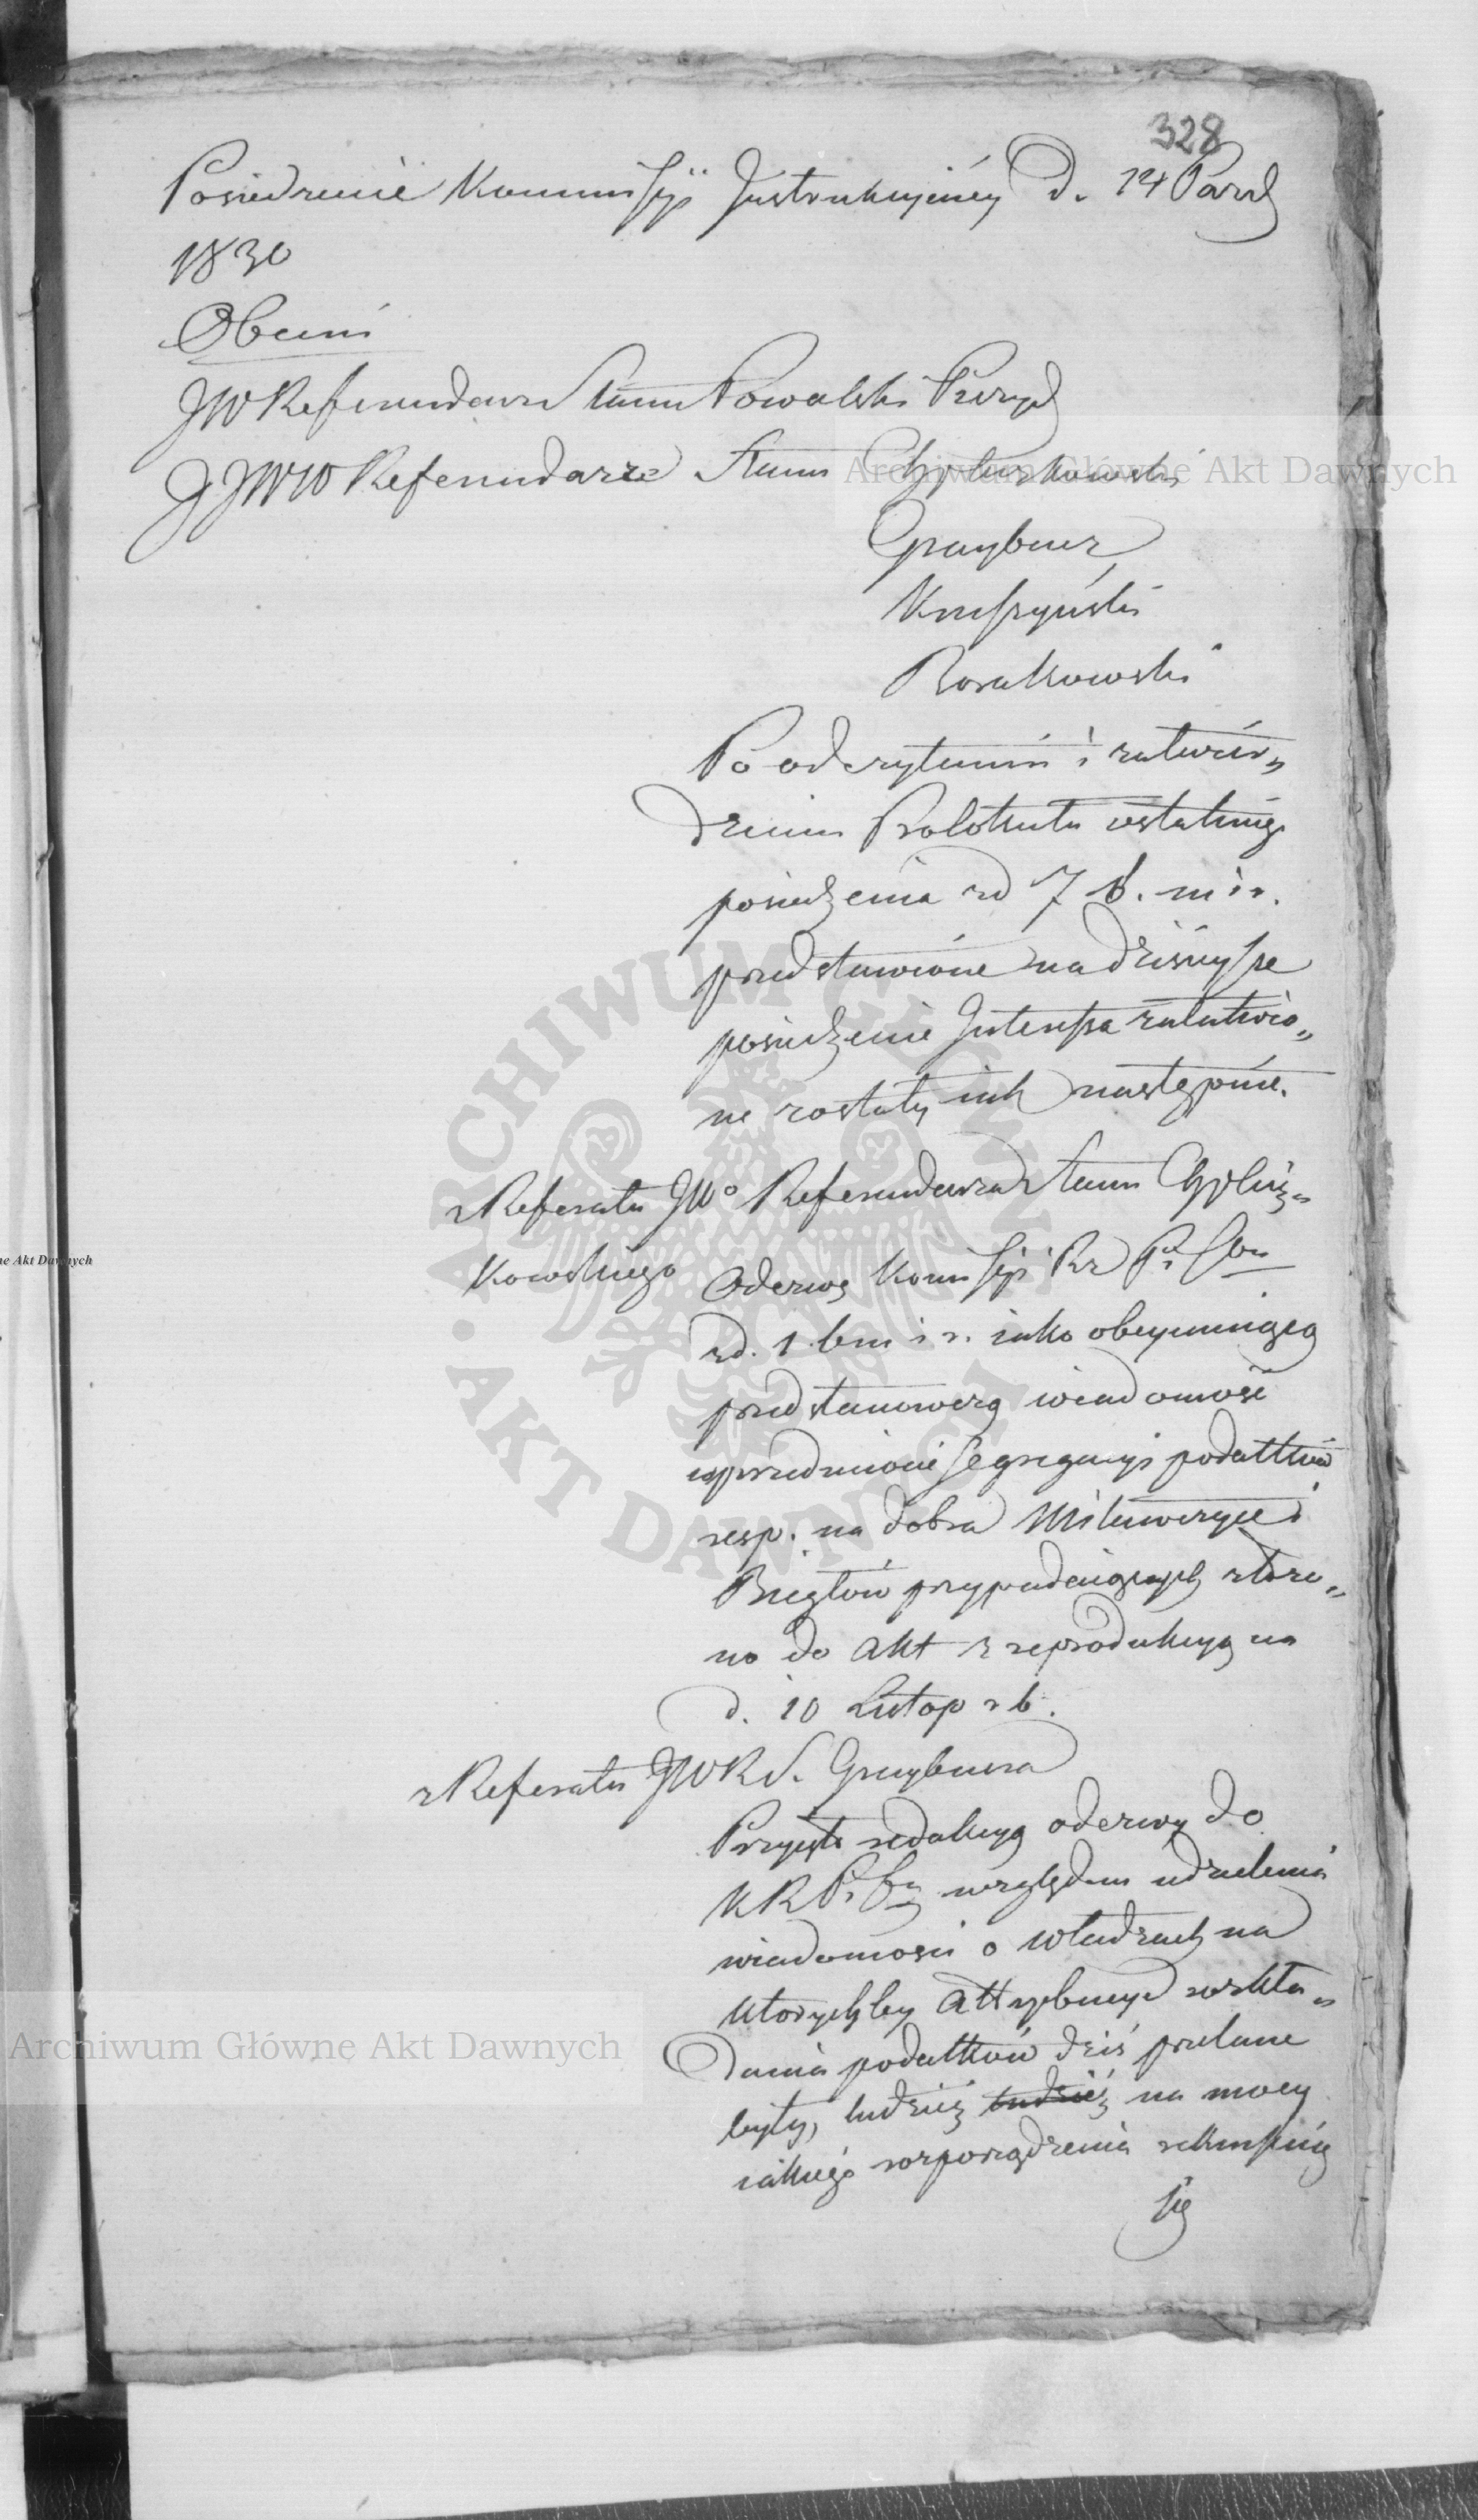 328
Posiedzenie Kommissyi Instrukcyiney D. 14 Pazd
1830
Obecni
JW Referendarz Stanu Kowalski Prezyd
JJWW Referendarze Stanu Chyliczkowski
Graybner
Kruszyński
Rosakowski
Po odczytaniu i zatwier„
dzeniu Protokułu ostatniego
posiedzenia z d 7 b. m i r.
przedstawione na dzisieysze
posiedzenie Interessa załatwio„
ne zostały iak następuie.
z Referatu JWo Referendarza Stanu Chylicz„
kowskiego
Odezwę Komissyi Rz P. i Sk
z d. 1. bm i r. iako obeymuiącą
przedstanowczą wiadomość
uprzedmiocie segregacyi podatków
resp. na dobra Milowczyce i
Bieglów przypadaiących złożo„
no do Akt z reprodukcyą na
d. 10 Listop r b.
z Referatu JWRS. Graybnera
Przyięto redakcyą odezwy do
KRPiSu względem udzielenia
wiadomości o władzach na
któreychby attrybucye rozkła„
dania podatków dziś przelane
były, tudzież tudzież na mocy
iakiego rozporządzenia uskuteczniə
się
Archiwum Główne Akt Dawnych
Archiwum Główne Akt Dawnych
ne Akt Dawnych
ARCHIWUM GŁÓWNE AKT DAWNYCH